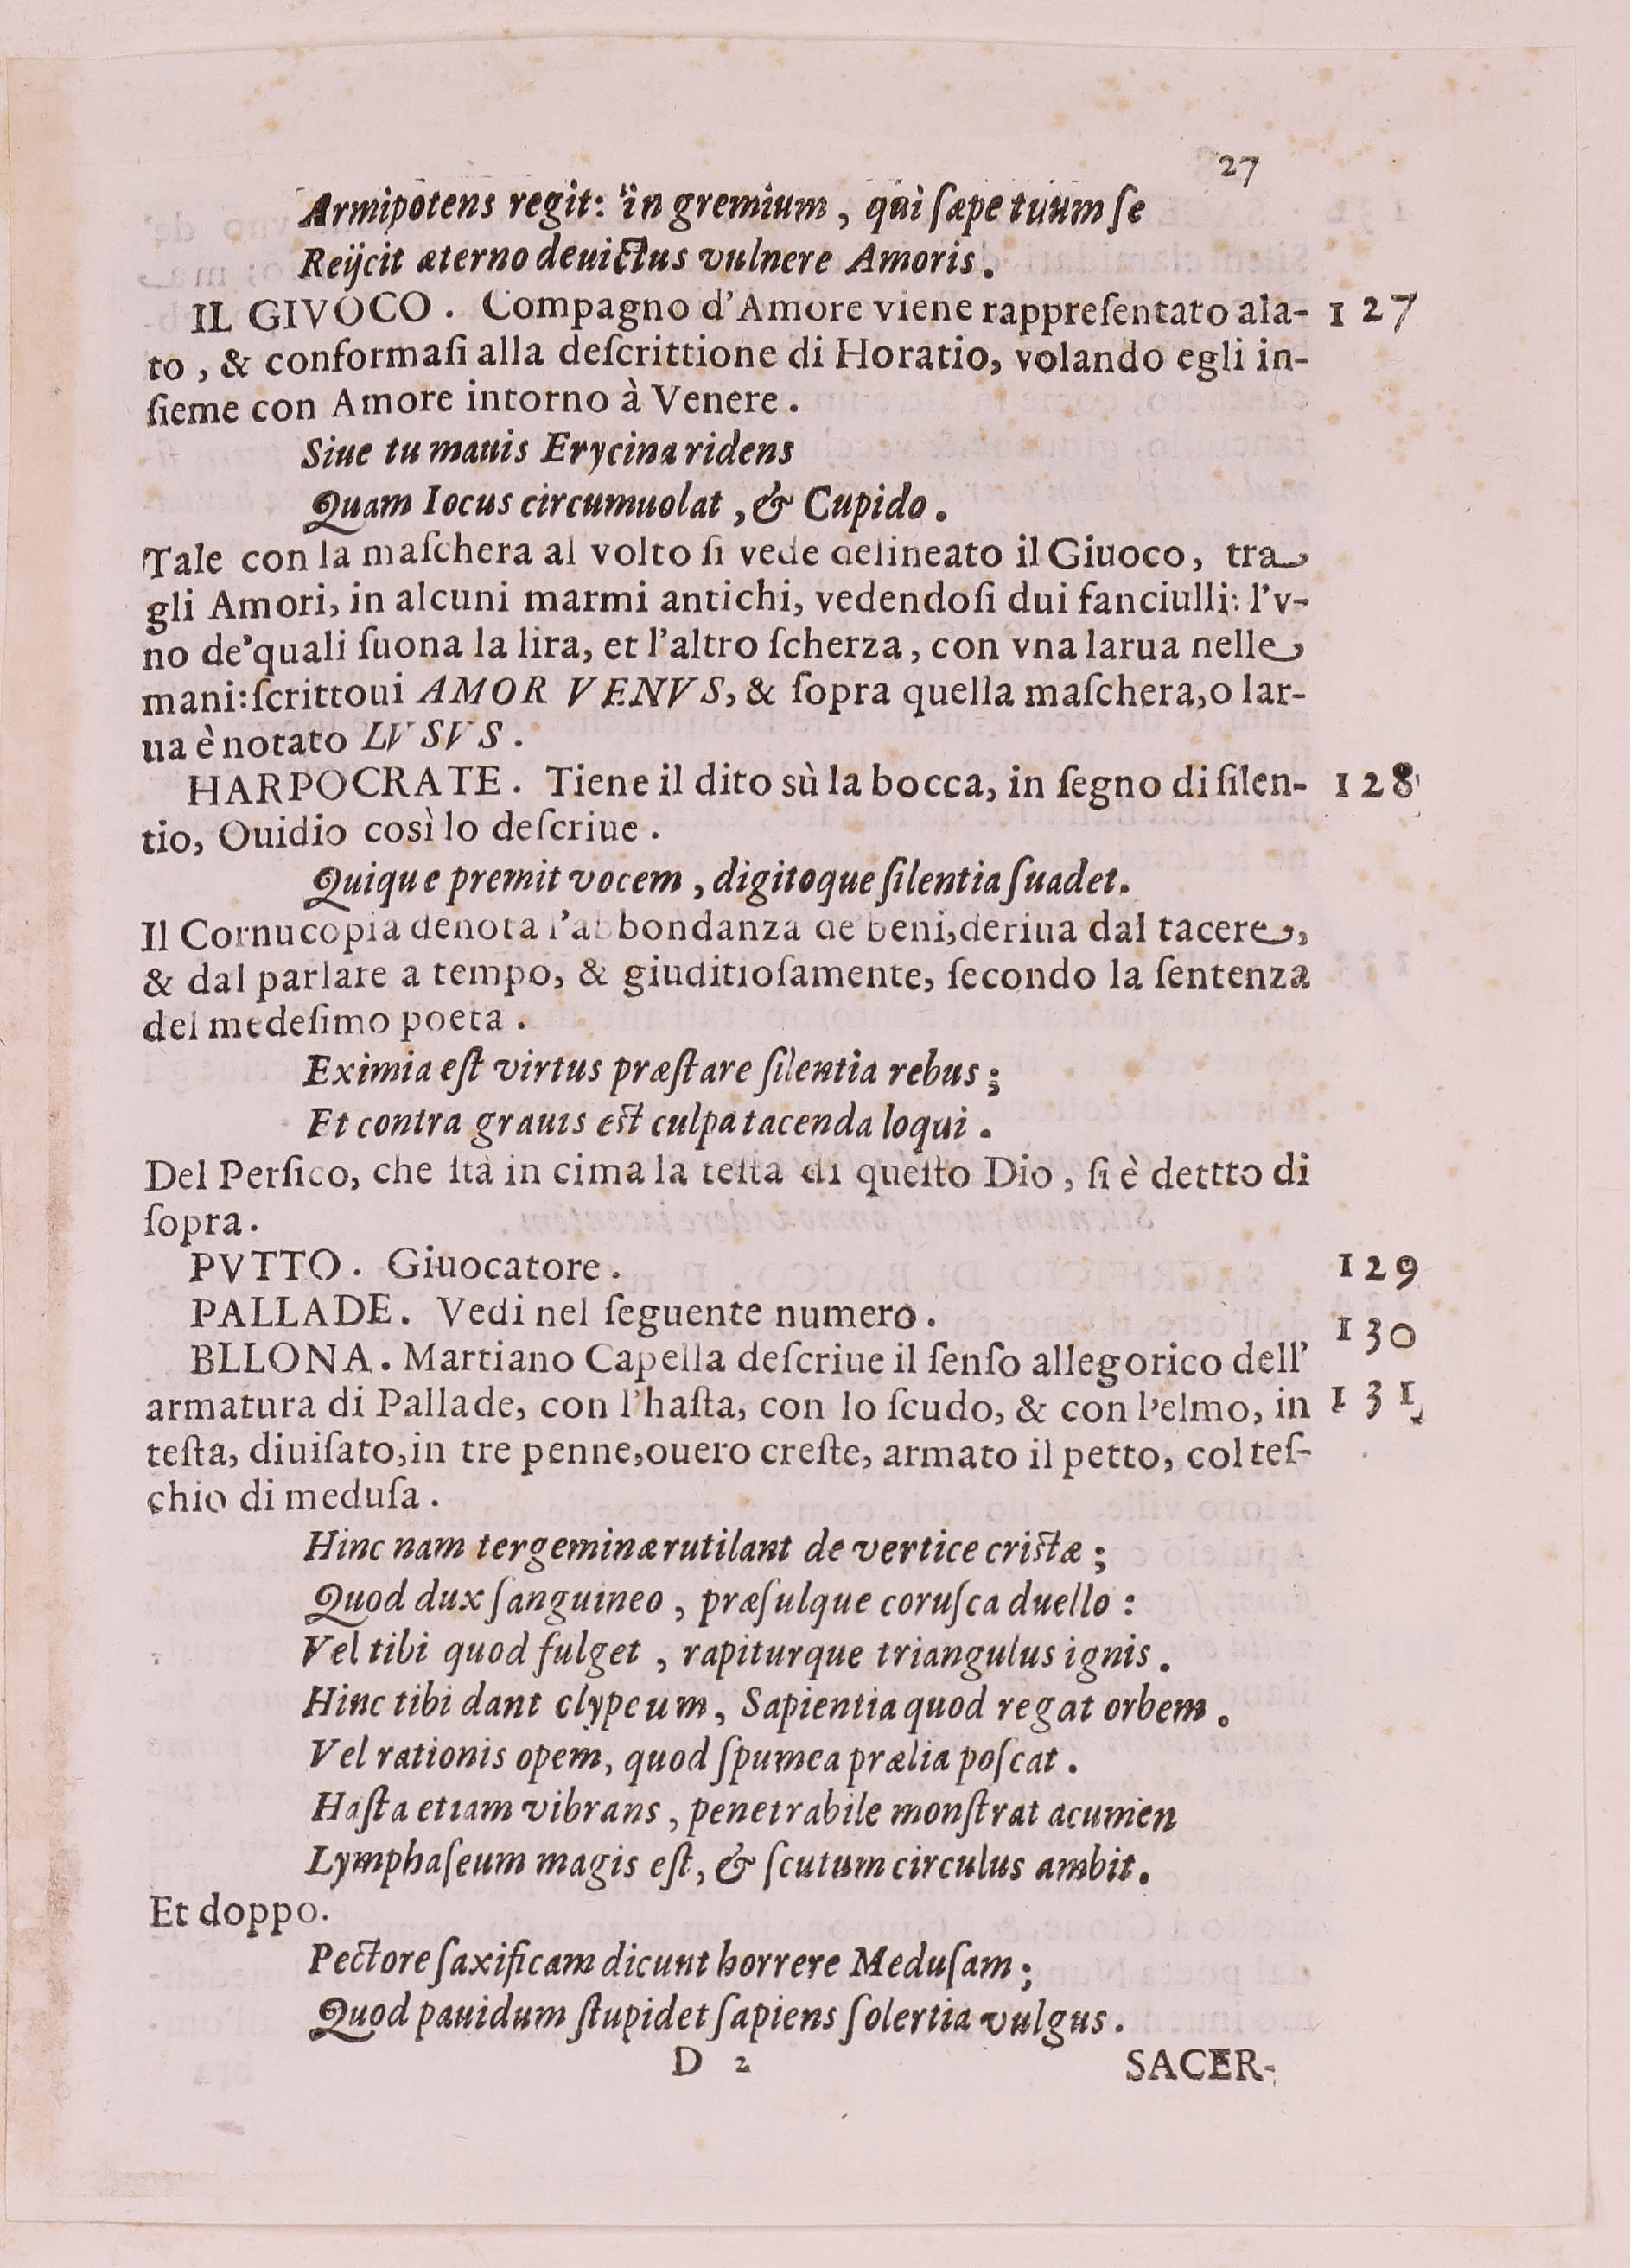 27
Armipotens regit: in gremium, qui ſæpe tuum ſe
Reijcit æterno deuictus vulnere Amoris.
IL GIVOCO. Compagno d'Amore viene rappreſentato ala- 127
to, & conformaſi alla deſcrittione di Horatio, volando egli in-
ſieme con Amore intorno à Venere.
Siue tu mauis Erycina ridens
Quam Iocus circumuolat, & Cupido.
Tale con la maſchera al volto ſi vede delineato il Giuoco, tra
gli Amori, in alcuni marmi antichi, vedendoſi dui fanciulli: l'v-
no de'quali ſuona la lira, et l'altro ſcherza, con vna larua nelle
mani: ſcrittoui AMOR VENVS, & ſopra quella maſchera, o lar-
ua è notato LVSVS.
HARPOCRATE. Tiene il dito sù la bocca, in ſegno di ſilen- 128
tio, Ouidio così lo deſcriue.
Quique premit vocem, digitoque ſilentia ſuadet.
Il Cornucopia denota l'abbondanza de beni, deriua dal tacere,
& dal parlare a tempo, & giuditioſamente, ſecondo la ſentenza
del medeſimo poeta.
Eximia eſt virtus præſtare ſilentia rebus;
Et contra grauis eſt culpa tacenda loqui.
Del Perſico, che ſtà in cima la teſta di queſto Dio, ſi è dettto di
ſopra.
PVTTO. Giuocatore. 129
PALLADE. Vedi nel ſeguente numero. 130
BLLONA. Martiano Capella deſcriue il ſenſo allegorico dell'
armatura di Pallade, con l'haſta, con lo ſcudo, & con l'elmo, in 131
teſta, diuiſato, in tre penne, ouero creſte, armato il petto, col teſ-
chio di meduſa.
Hinc nam tergeminæ rutilant de vertice criſtæ;
Quod dux ſanguineo, præſulque coruſca duello:
Vel tibi quod fulget, rapiturque triangulus ignis.
Hinc tibi dant clypeum, Sapientia quod regat orbem.
Vel rationis opem, quod ſpumea prælia poſcat.
Haſta etiam vibrans, penetrabile monſtrat acumen
Lymphaſeum magis eſt, & ſcutum circulus ambit.
Et doppo.
Pectore ſaxificam dicunt horrere Meduſam;
Quod pauidum ſtupidet ſapiens ſolertia vulgus.
D 2 SACER-